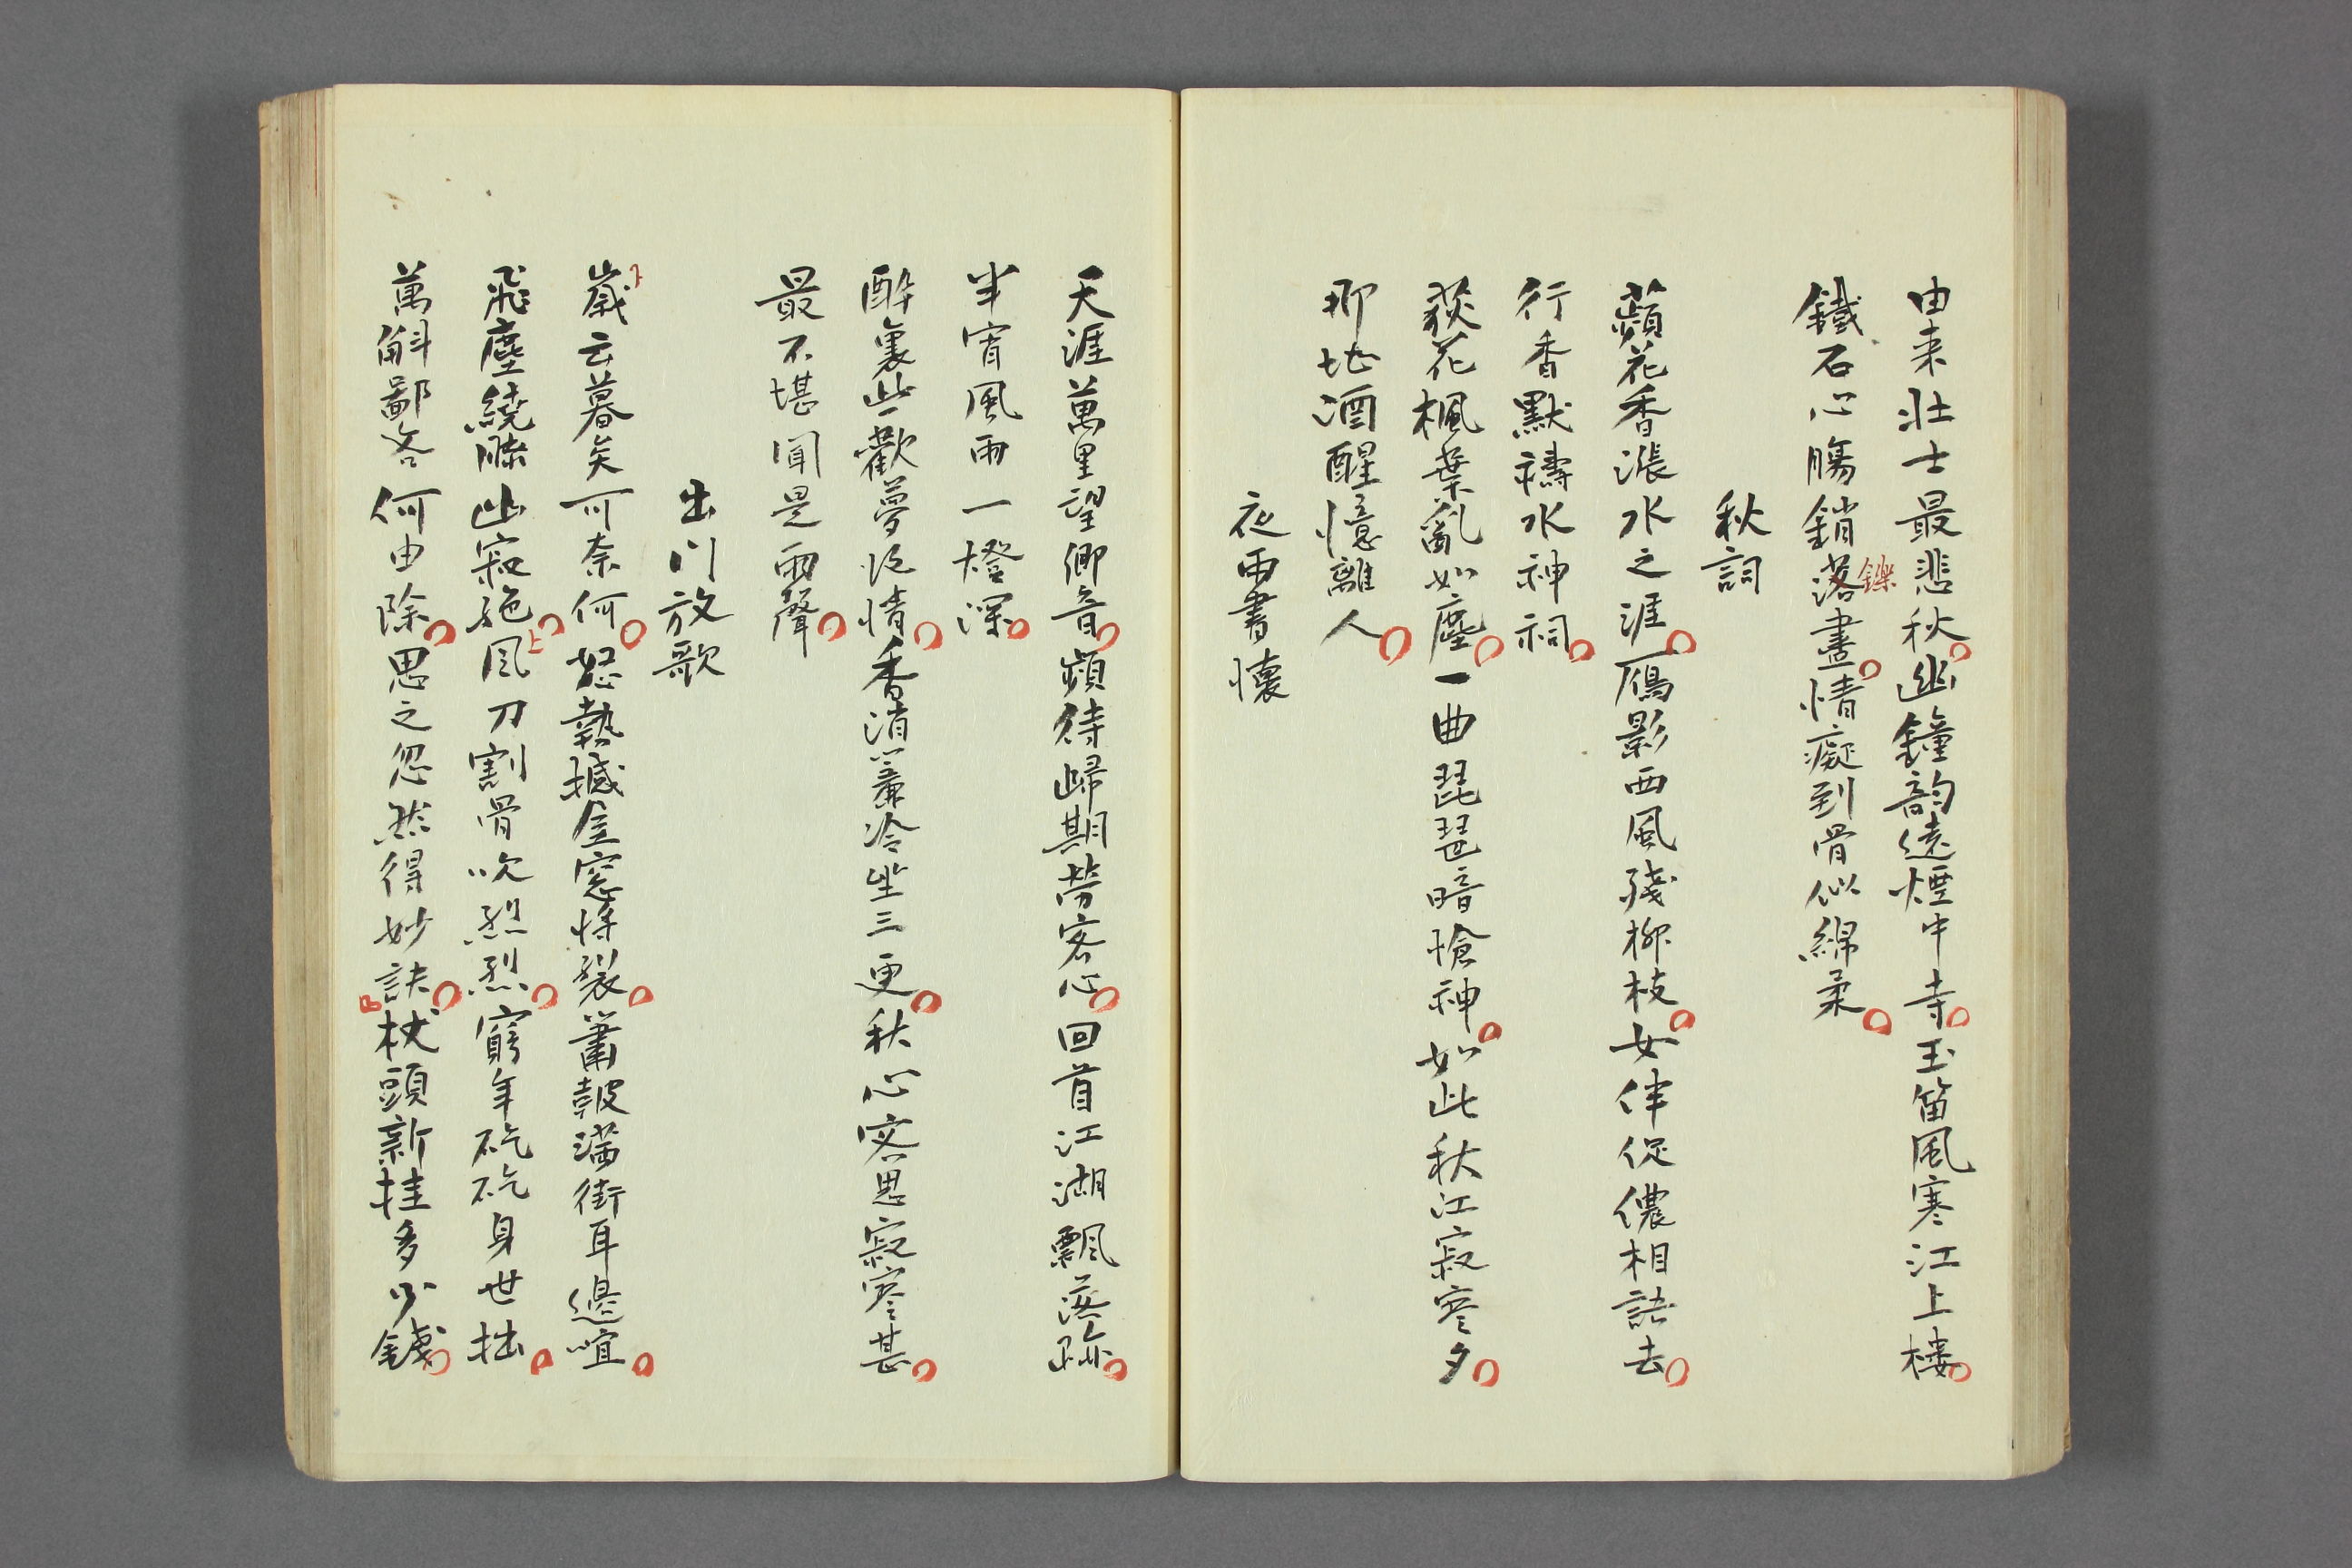 由来壮士最悲秋幽鐘韵遠煙中寺玉笛風寒江上楼
鐵石心腸銷落盡情癡到骨似綿柔
鑠
秋詞
蘋花香漲水之涯鴈影西風殘柳枝女伴促儂相語去
行香默禱水神祠
荻花楓葉亂如塵一曲琵琶暗愴神如此秋江寂寞夕
那堪酒醒憶離人
夜雨書懷
天涯萬里望卿音頻待歸期勞客心回首江湖飄落跡
半宵風雨一燈深
酔裏些歡夢後情香消簾冷坐三更秋心客思寂寥甚
最不堪聞是雨聲
出門放歌
歲云暮矣可奈何怒勢撼屋窓将裂簫皷満街耳邊喧
飛塵繞膝幽寂絶風刀割骨吹烈烈窮年矻矻身世拙
上
萬斛鄙吝何由除思之忽然得妙訣杖頭新挂多少錢